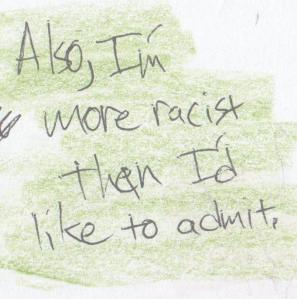 Also, I'm
more racist
than I'd
like to admit.